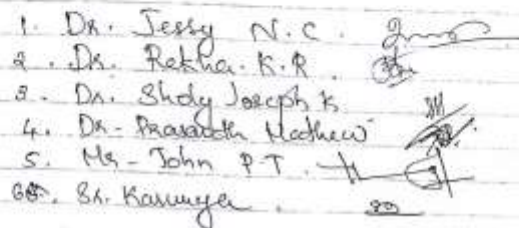 1. Dr. Jessy N.C.
2. Dr. Rekha. K.R.
3. Dr. Shdy Joseph K
4. Dr - Prasanth Mathew
5. Mr - John P.T.
6. Sr. Karunya.